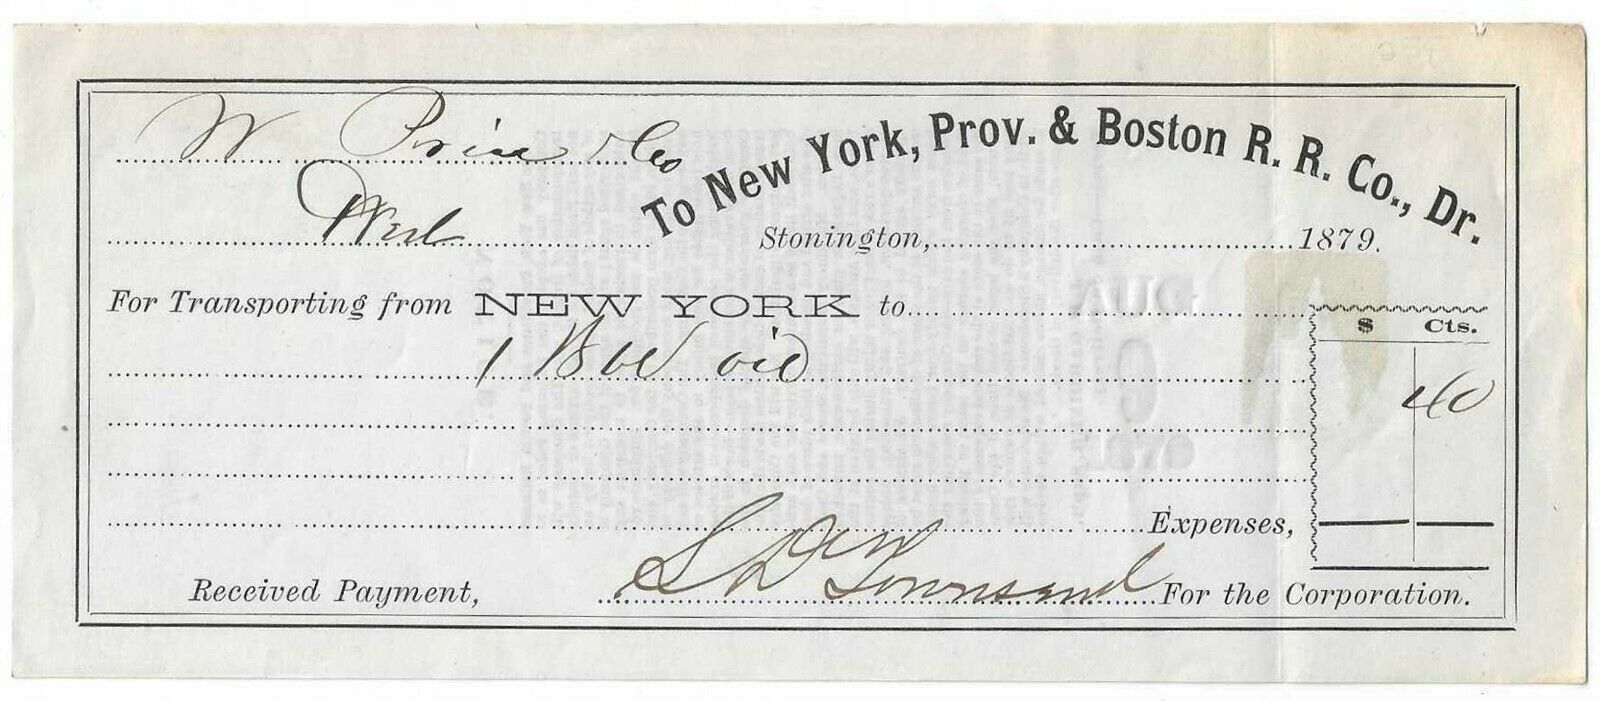 W Price & Co
To New York, Prov. & Boston R. R. Co., Dr.
Stonington, 1879.
For Transporting from NEW YORK to
$ Cts.
1 Bbl oil
40
Expenses,
Received Payment, Townsend For the Corporation.